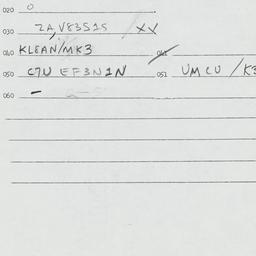 020 0
030 ZA, V83S1S XX
040 KLEAN/MK3 041
050 C7U EF3N1N 051 UMCU /K3
060 –